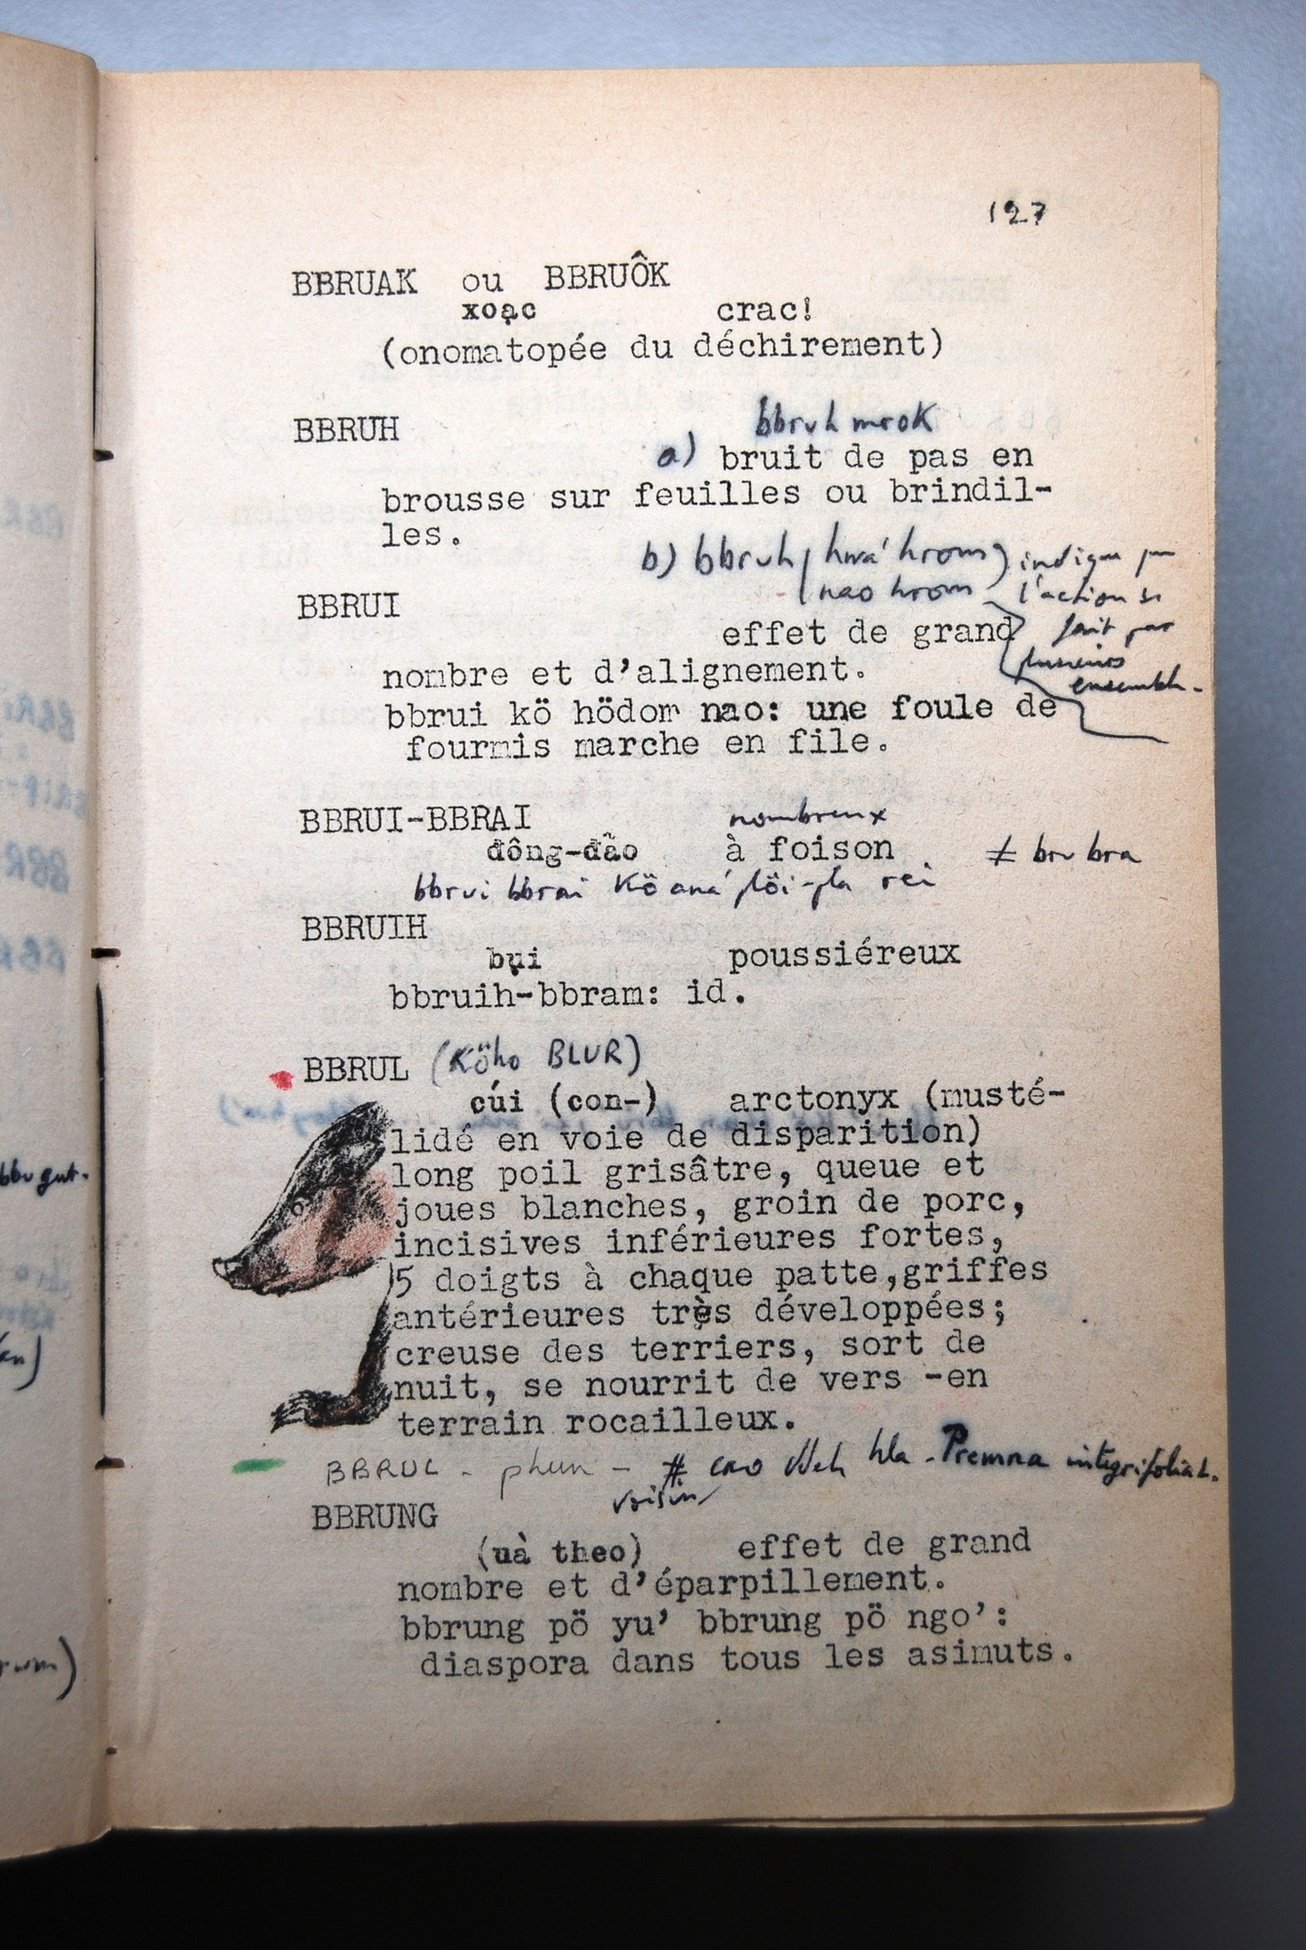 127
BBRUAK ou BBRUÔK
xoạc crac!
(onomatopée du déchirement)
bbruh mrok
BBRUH
a) bruit de pas en
brousse sur feuilles ou brindil-
les.
b) bbruh (hwa' hrom) indique
(nao hrom l'action
BBRUI
effet de grand fait par
plusieurs
nombre et d'alignement.
ensemble.
bbrui kö hödom nao: une foule de
fourmis marche en file.
BBRUI-BBRAI nombreux
đông-đão à foison ≠ bru bra
bbrui bbrai Kö ana' rei
BBRUIH
bụi poussiéreux
bbruih-bbram: id.
BBRUL (Köho BLUR)
cúi (con-) arctonyx (musté-
lidé en voie de disparition)
long poil grisâtre, queue et
joues blanches, groin de porc,
incisives inférieures fortes,
5 doigts à chaque patte,griffes
antérieures très développées;
creuse des terriers, sort de
nuit, se nourrit de vers -en
terrain rocailleux.
BBRUL - phun - # hla - Premna integrifolia L.
voisin
BBRUNG
(uà theo) effet de grand
nombre et d'éparpillement.
bbrung pö yu' bbrung pö ngo':
diaspora dans tous les asimuts.
bbu gut.